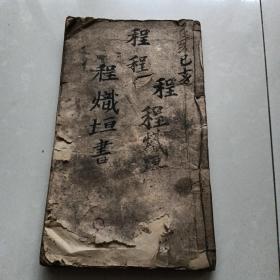 己亥
程
程熾垣
程程
程熾垣書